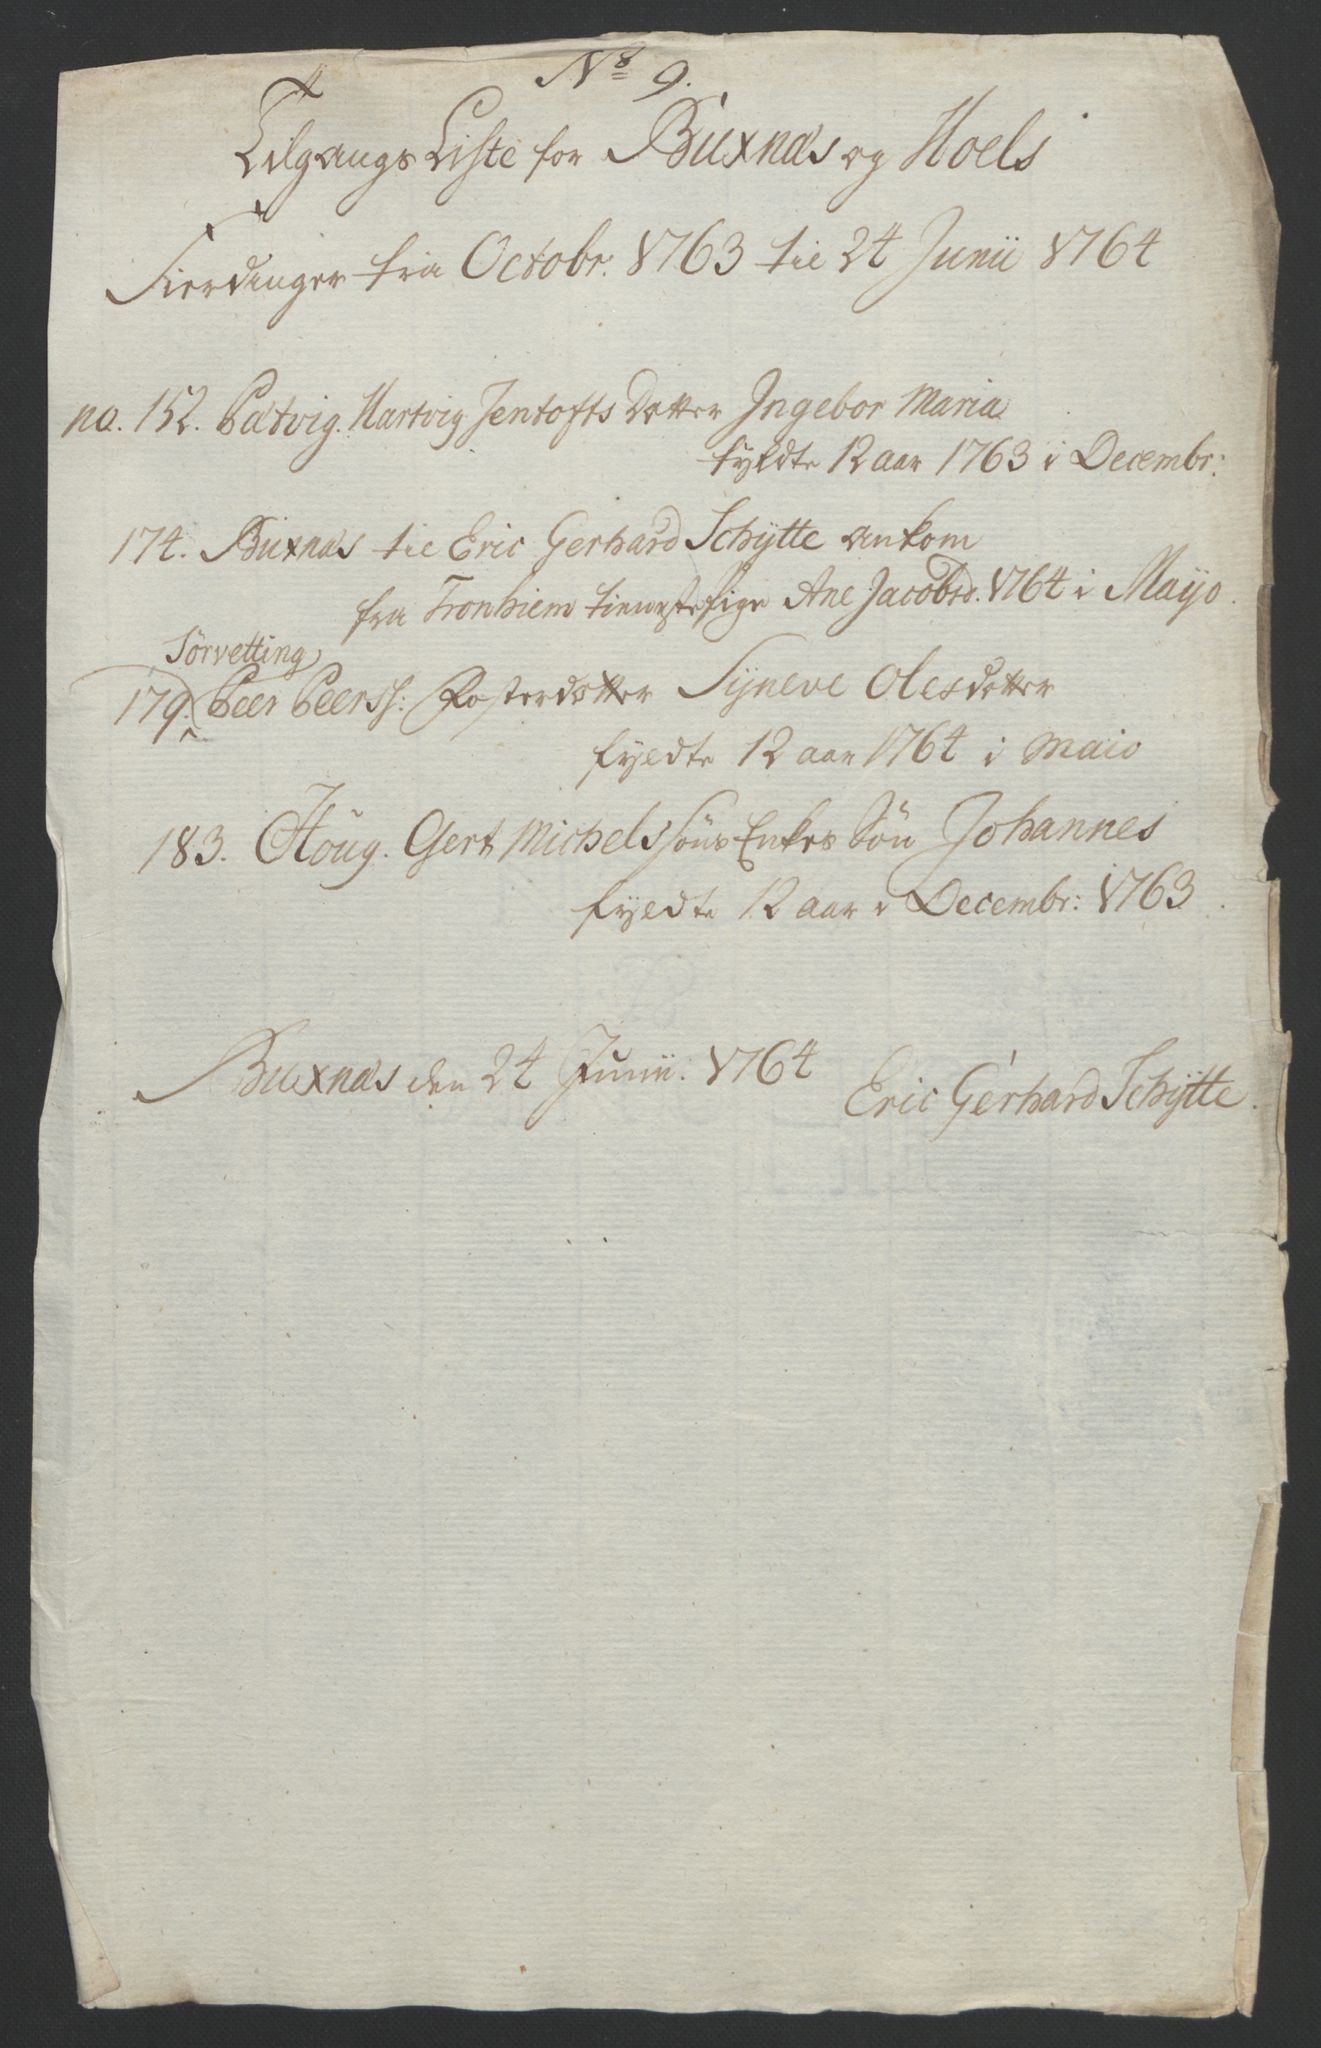 No 9.
Tilgangs Liste for Buxnæs og Hoels
Fierdinger fra Octobr. 1763 til 24 Junii 1764
no. 152. Petvig. Hartvig Jentofts Datter Ingebor Maria
fyldte 12 aar 1763 i Decembr:
174. Buxnæs til Eric Gerhard Schytte ankom
fra Tronhiem tieneste Pige Ane Jacobsd. 1764 i Mayo.
Sørvetting
179. Peer Peerss: Fosterdatter Syneve Olesdatter
fyldte 12 aar 1764 i Maio
183. Houg. Gert Michelssøns Enkes Søn Johannes
fyldte 12 aar i Decembr: 1763.
Buxnæs den 24 Junii. 1764
Eric Gerhard Schytte.